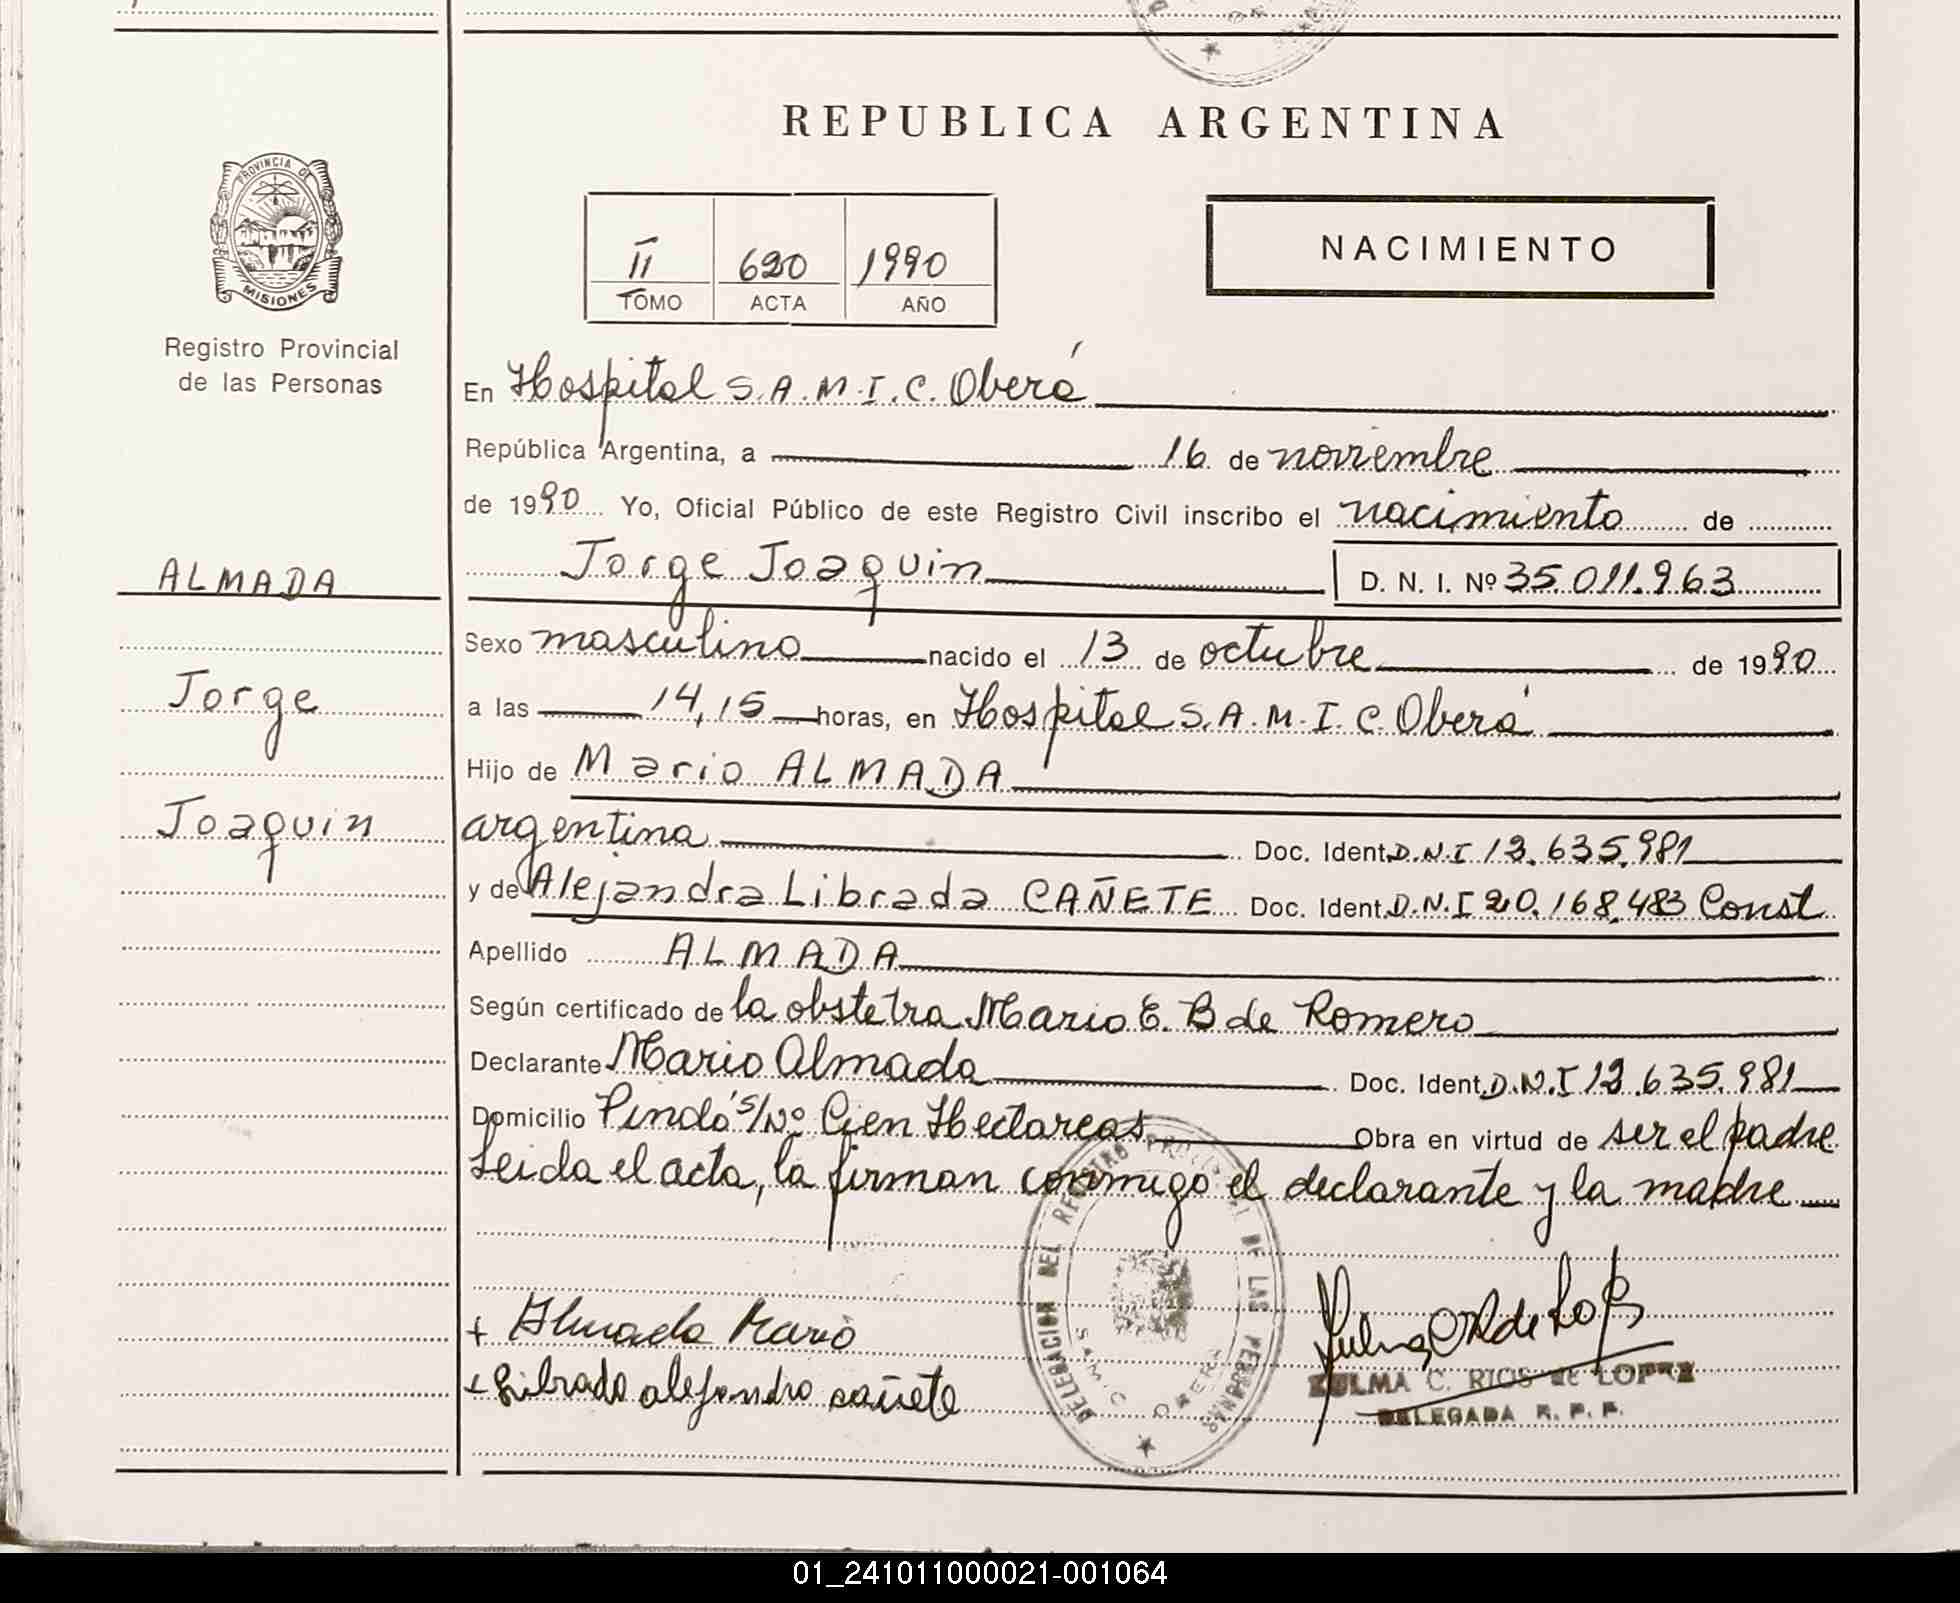 REPUBLICA ARGENTINA
PROVINCIA DE
MISIONES
Registro Provincial
de las Personas
II 620 1990
TOMO ACTA AÑO
NACIMIENTO
En Hospital S.A.M.I.C. Oberá
República Argentina, a 16 de noviembre
de 1990 Yo, Oficial Público de este Registro Civil inscribo el nacimiento de
Jorge Joaquin D. N. I. Nº 35.011.963
ALMADA
Jorge
Joaquin
Sexo masculino nacido el 13 de octubre de 1990
a las 14,15 horas, en Hospital S.A.M.I.C. Oberá
Hijo de Mario ALMADA
argentina Doc. Ident. D.N.I 13.635.981
y de Alejandra Librada CAÑETE Doc. Ident. D.N.I 20.168.483 Const
Apellido ALMADA
Según certificado de la obstetra Mario E. B de Romero
Declarante Mario Almada Doc. Ident. D.N.I 13.635.981
Domicilio Pindó s/Nº Cien Hectareas Obra en virtud de ser el padre
Leida el acta, la firman conmigo el declarante y la madre
DELEGACION DEL REGISTRO PROVINCIAL DE LAS PERSONAS
SAMIC OBERA
+ Almada Mario
+ Librada alejandra cañete
ZULMA C. RIOS de LOPEZ
DELEGADA R. P. P.
01_241011000021-001064